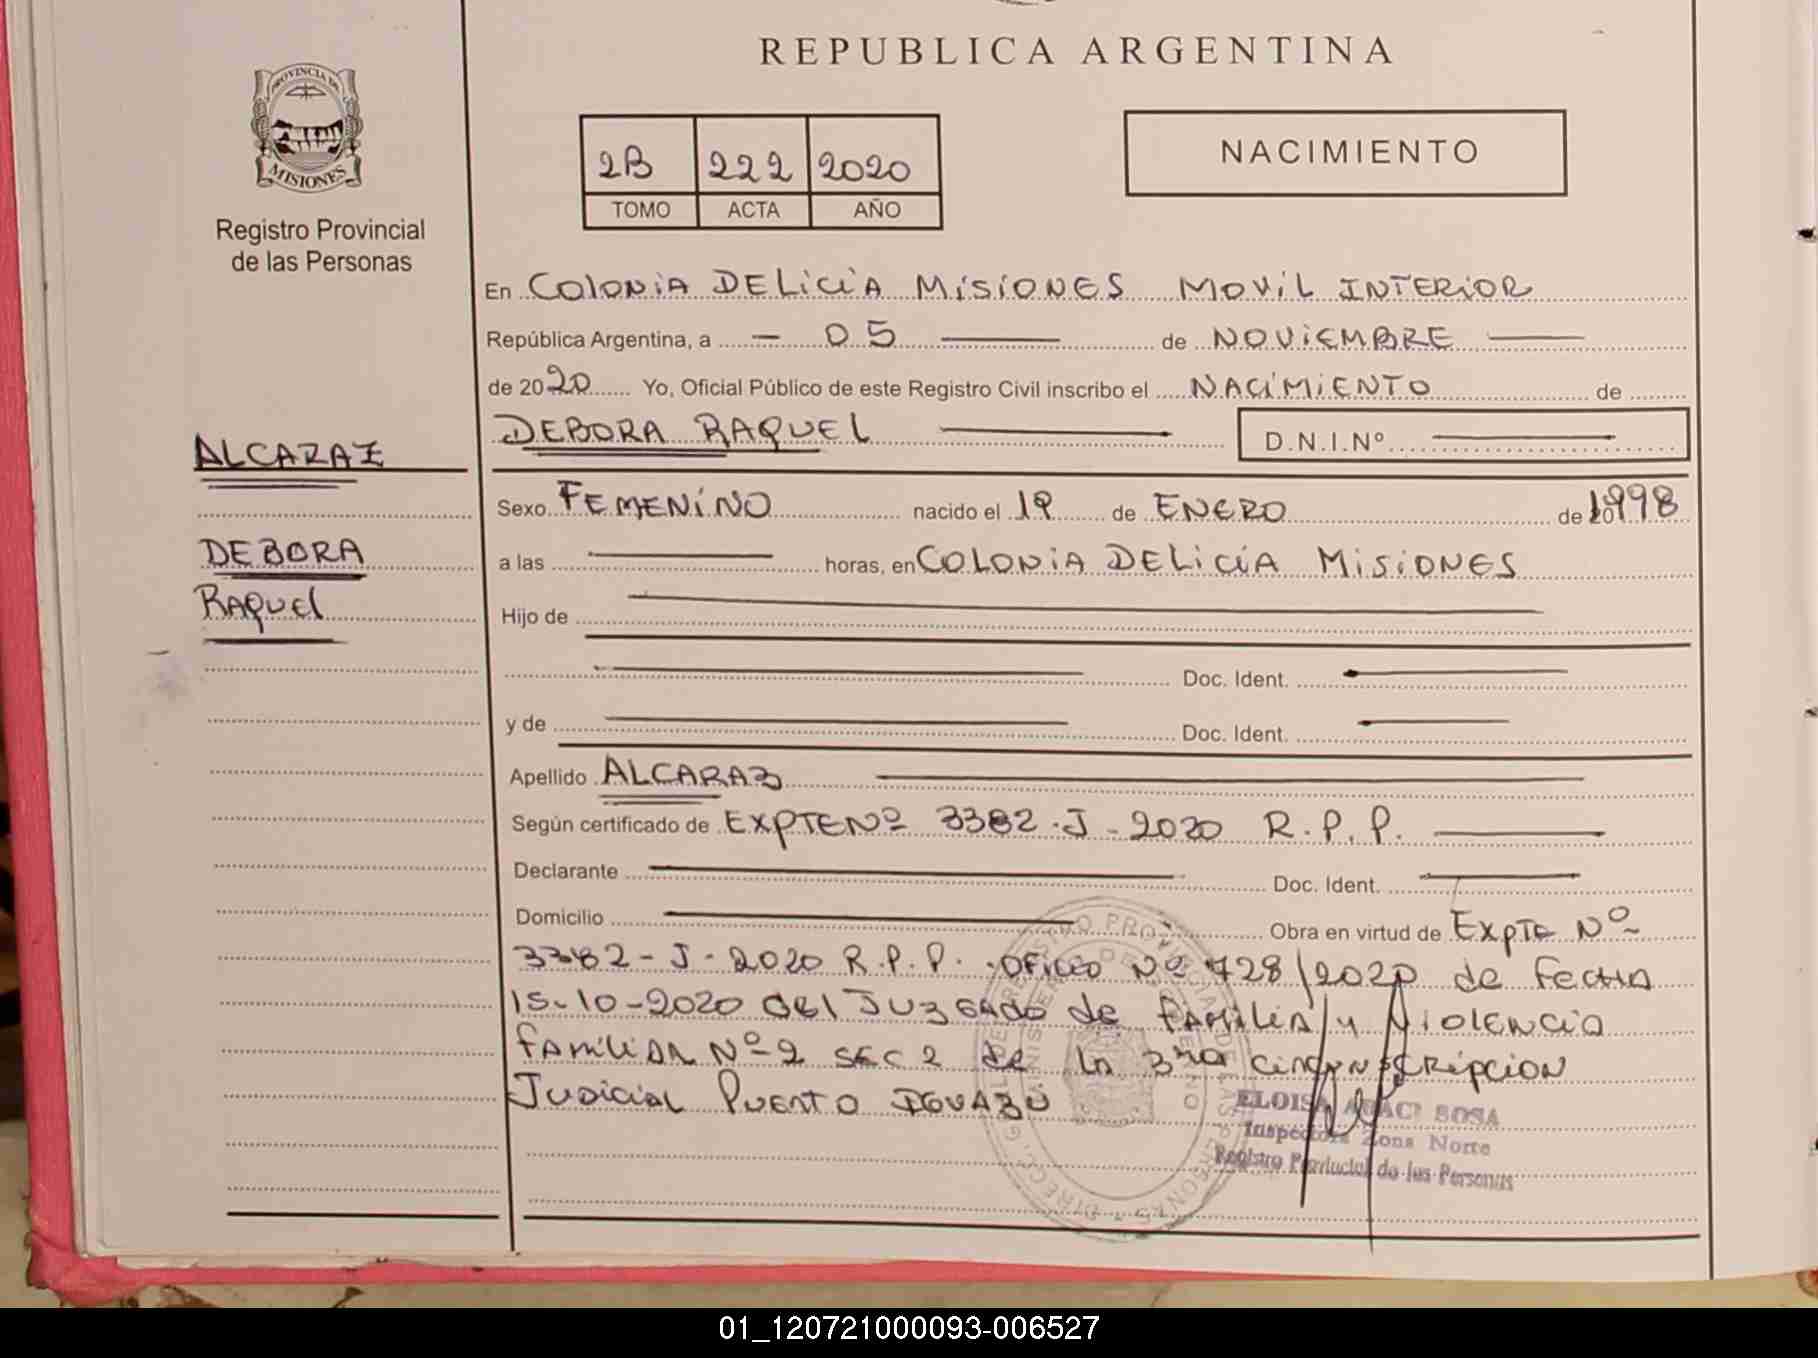 REPUBLICA ARGENTINA
PROVINCIA DE
MISIONES
Registro Provincial
de las Personas
2B 222 2020
TOMO ACTA AÑO
NACIMIENTO
En COLONIA DELICIA MISIONES MOVIL INTERIOR
República Argentina, a - 05 de NOVIEMBRE
de 2020 Yo, Oficial Público de este Registro Civil inscribo el NACIMIENTO de
DEBORA RAQUEL D.N.I.Nº
ALCARAZ
DEBORA
RAQUEL
Sexo FEMENINO nacido el 19 de ENERO de 1998
a las horas, en COLONIA DELICIA MISIONES
Hijo de
Doc. Ident.
y de Doc. Ident.
Apellido ALCARAZ
Según certificado de EXPTE Nº 3382-J-2020 R.P.P.
Declarante Doc. Ident.
Domicilio Obra en virtud de EXPTE Nº
3382-J-2020 R.P.P. OFICIO Nº 728/2020 de FECHA
15-10-2020 DEL JUZGADO de FAMILIA y VIOLENCIA
FAMILIAR Nº 2 SEC 2 de LA 3ra CIRCUNSCRIPCION
JUDICIAL PUERTO IGUAZU
ELOISA SOSA
Inspectora Zona Norte
Registro Provincial de las Personas
01_120721000093-006527